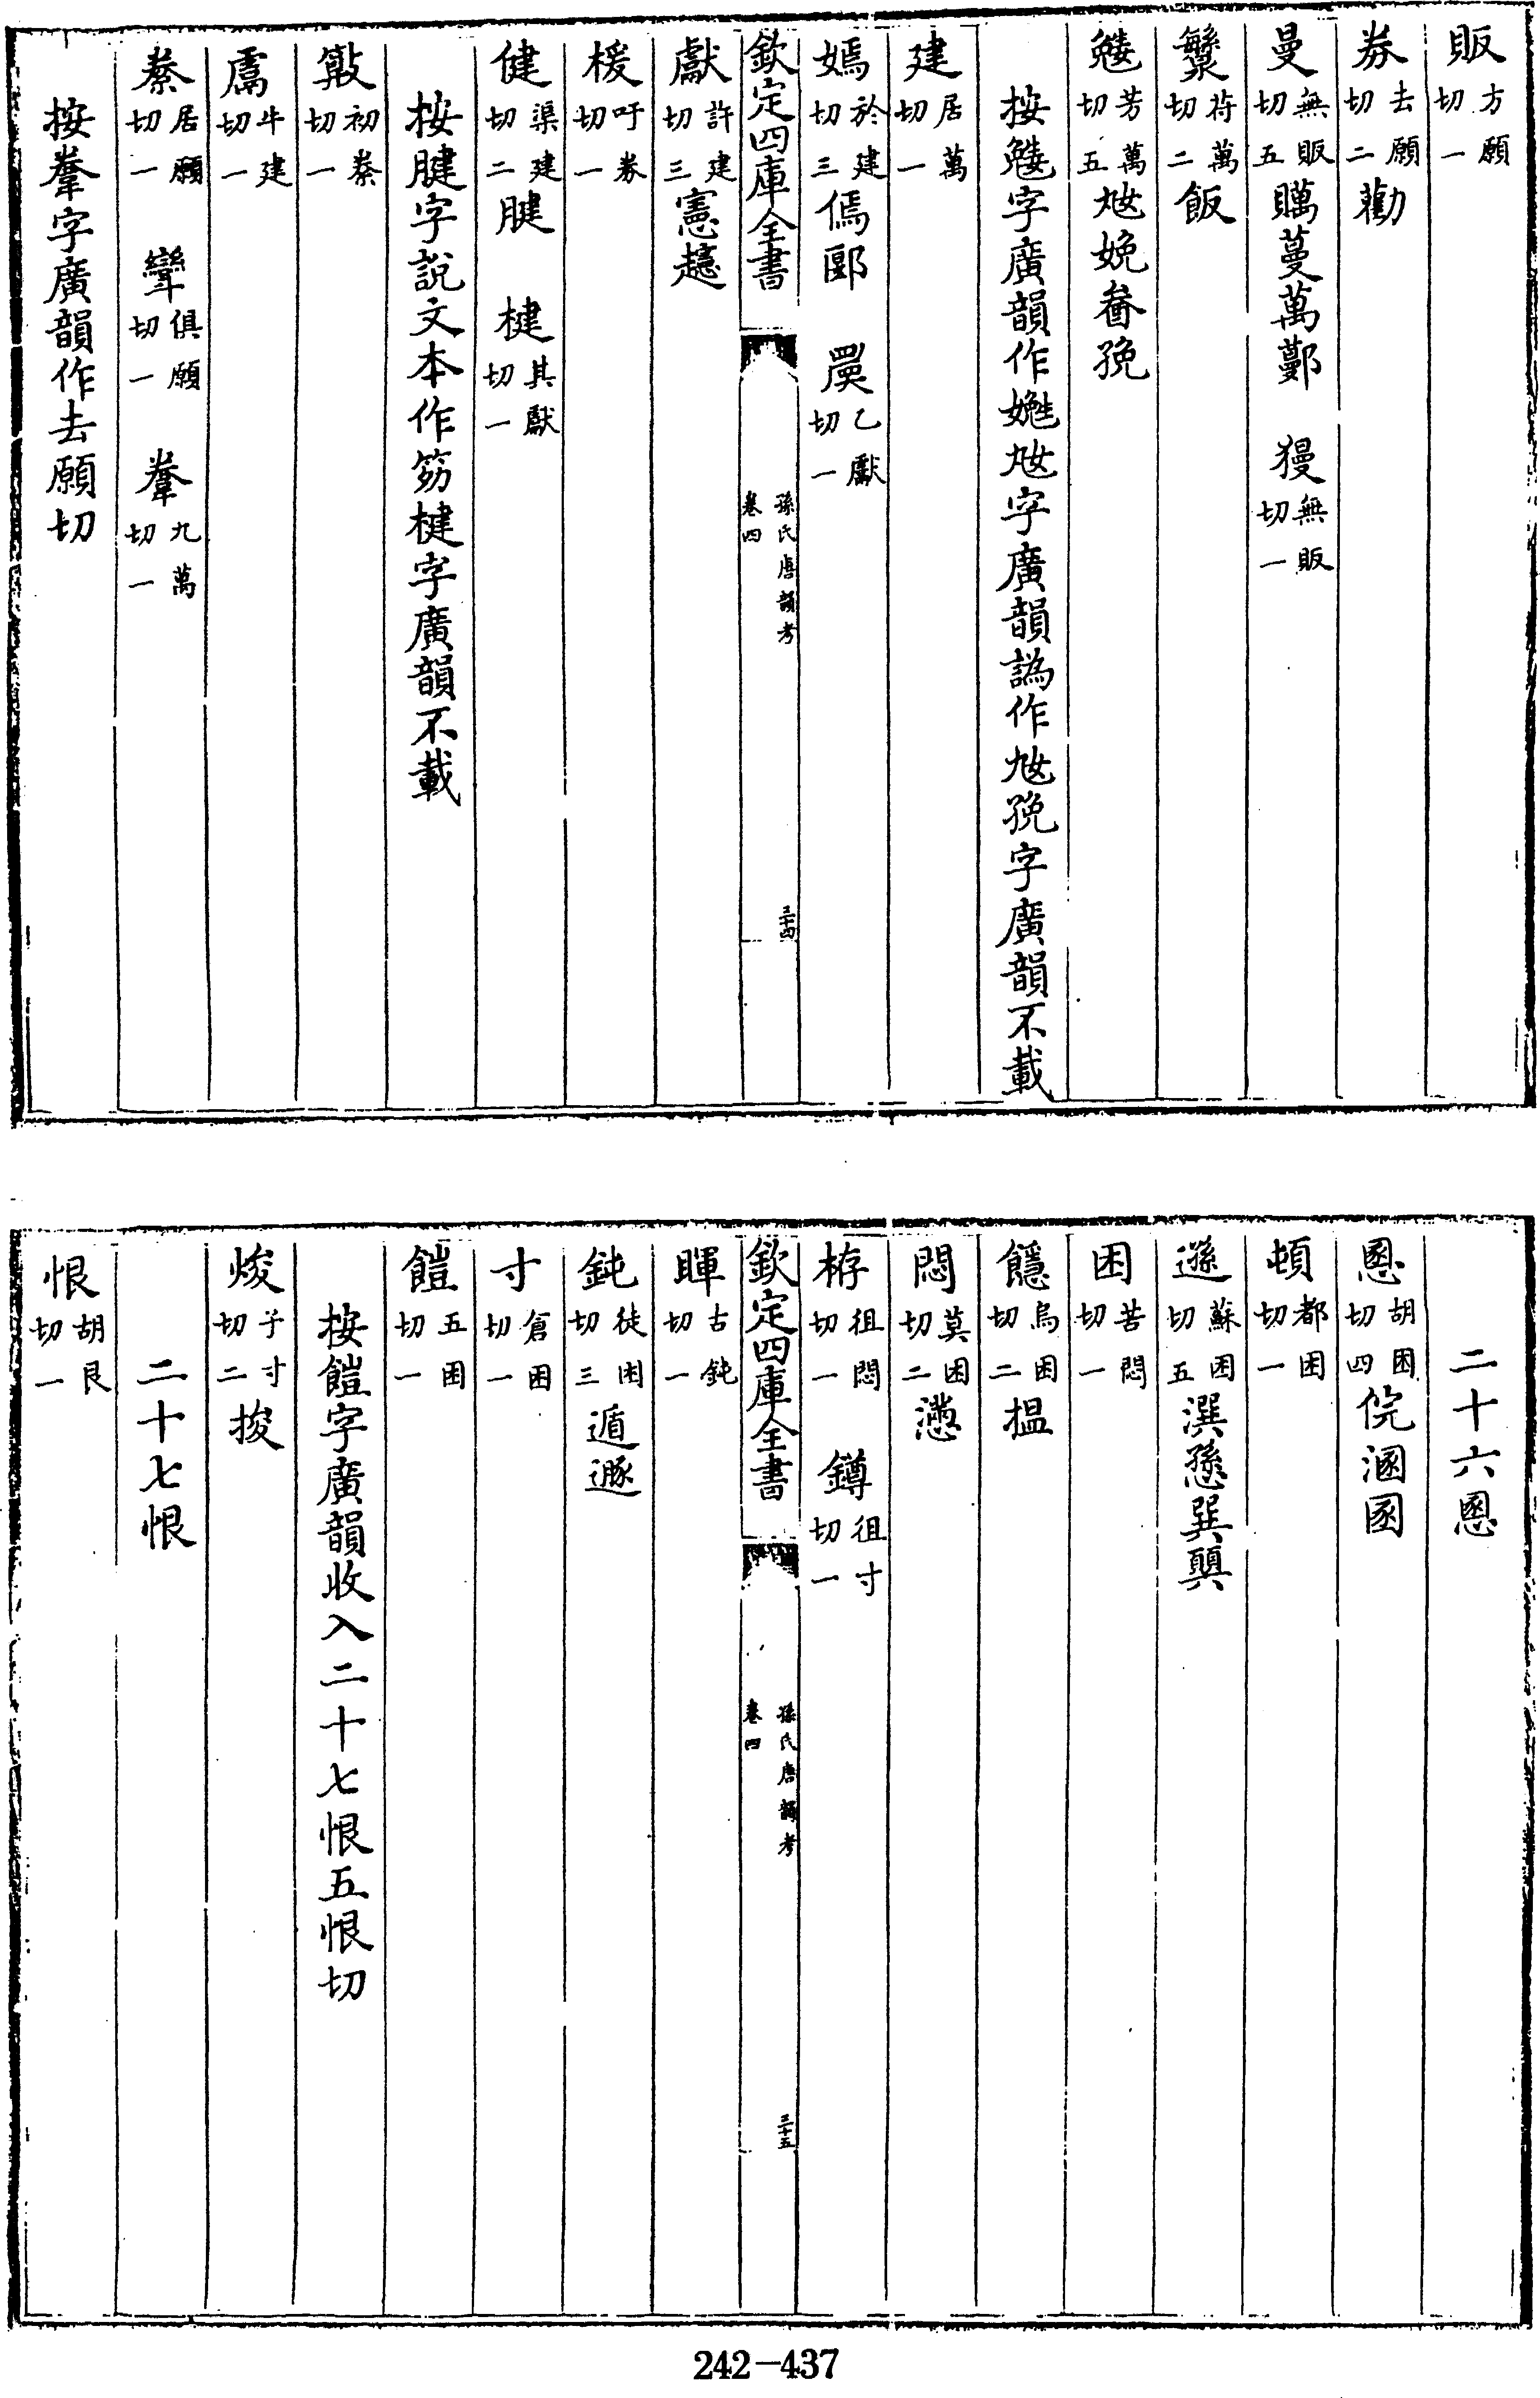 販方願切一
券去願切二勸
曼無販切五購蔓萬鄤　獌無販切一
䋣符萬切二飯
㝃芳萬切五㚫娩畚㝃
按㝃字廣韻作㝃㚫字廣韻譌作㚫㝃字廣韻不載
建居萬切一
嫣於建切三傿郾　䍻乙獻切一
欽定四庫全書
孫氏唐韻考
卷四
三十四
獻許建切三憲趰
楥吁券切一
健渠建切二腱　楗其獻切一
按腱字說文本作笏楗字廣韻不載
䉔初𢍏切一
鬳牛建切一
𢍏居願切一　㡩俱願切一　䊎九萬切一
按䊎字廣韻作去願切
二十六慁
慁胡困切四俒溷圂
頓都困切一
遜蘇困切五潠愻巽顨
困苦悶切一
㥯烏困切二揾
悶莫困切二懣
栫徂悶切一　鐏徂寸切一
欽定四庫全書
孫氏唐韻考
卷四
三十五
睴古鈍切一
鈍徒困切三遁遯
寸倉困切一
䭓五困切一
按䭓字廣韻收入二十七恨五恨切
焌子寸切二捘
二十七恨
恨胡艮切一
242-437